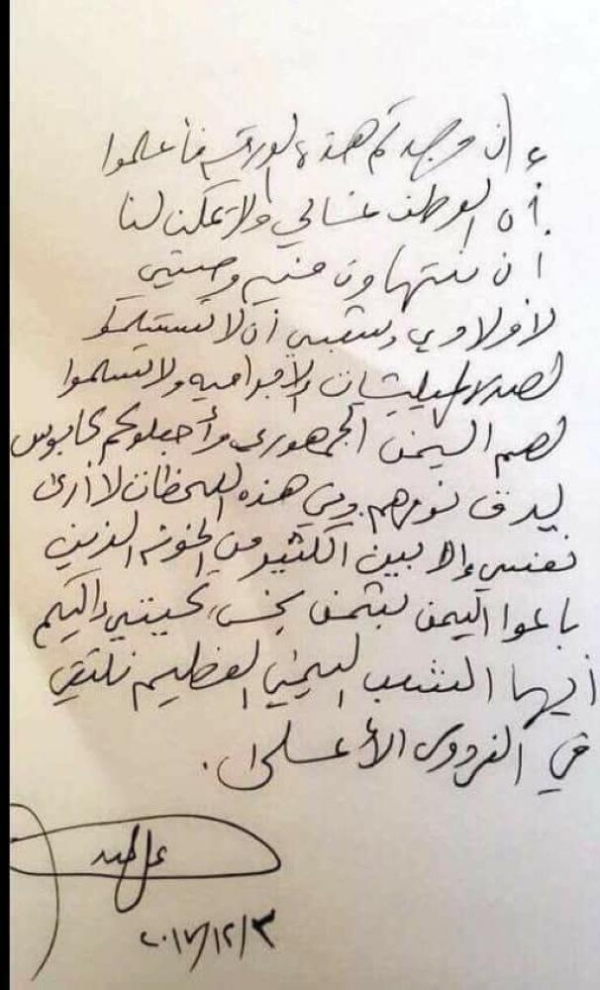 إن وجدتم هذه الورقة فأعلموا
أن الوطن غالي ولا يمكن لنا
أن نتهاون فيه وصيتي
لأولادي وشعبي أن لا تستسلمو
لهذه المليشيات الإجراميه ولا تسلموا
لهم اليمن الجمهوري وأجعلوكم كابوس
يدق نومهم. وفي هذه اللحظات لا أرى
نفسي إلا بين الكثير من الخونه الذين
باعوا اليمن بثمن بخس، تحيتي إليكم
أيها الشعب اليمني العظيم نلتقي
في الفردوس الأعلى.
٢٠١٧/١٢/٣